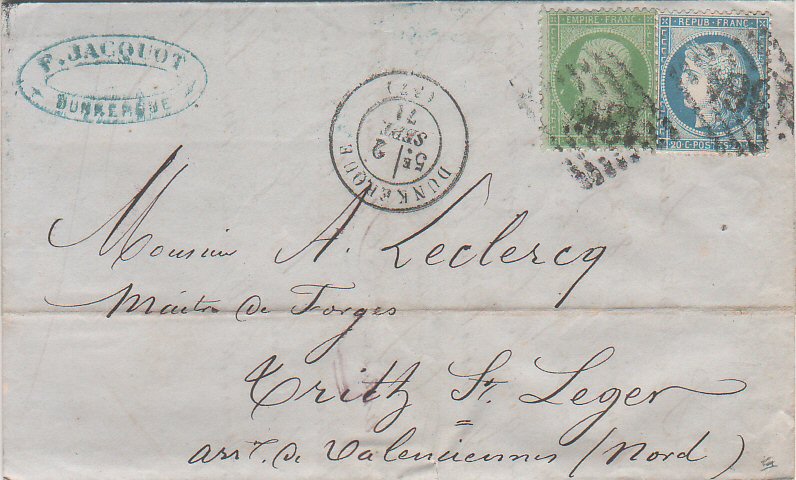 F. JACQUOT
DUNKERQUE
EMPIRE FRANC
REPUB FRANC
20 C POSTES 20
DUNKERQUE
5E
2
SEPT.
71
Monsieur A. Leclercq
Maitre de Forges
Trith St. Leger
arrt. de Valenciennes (Nord)